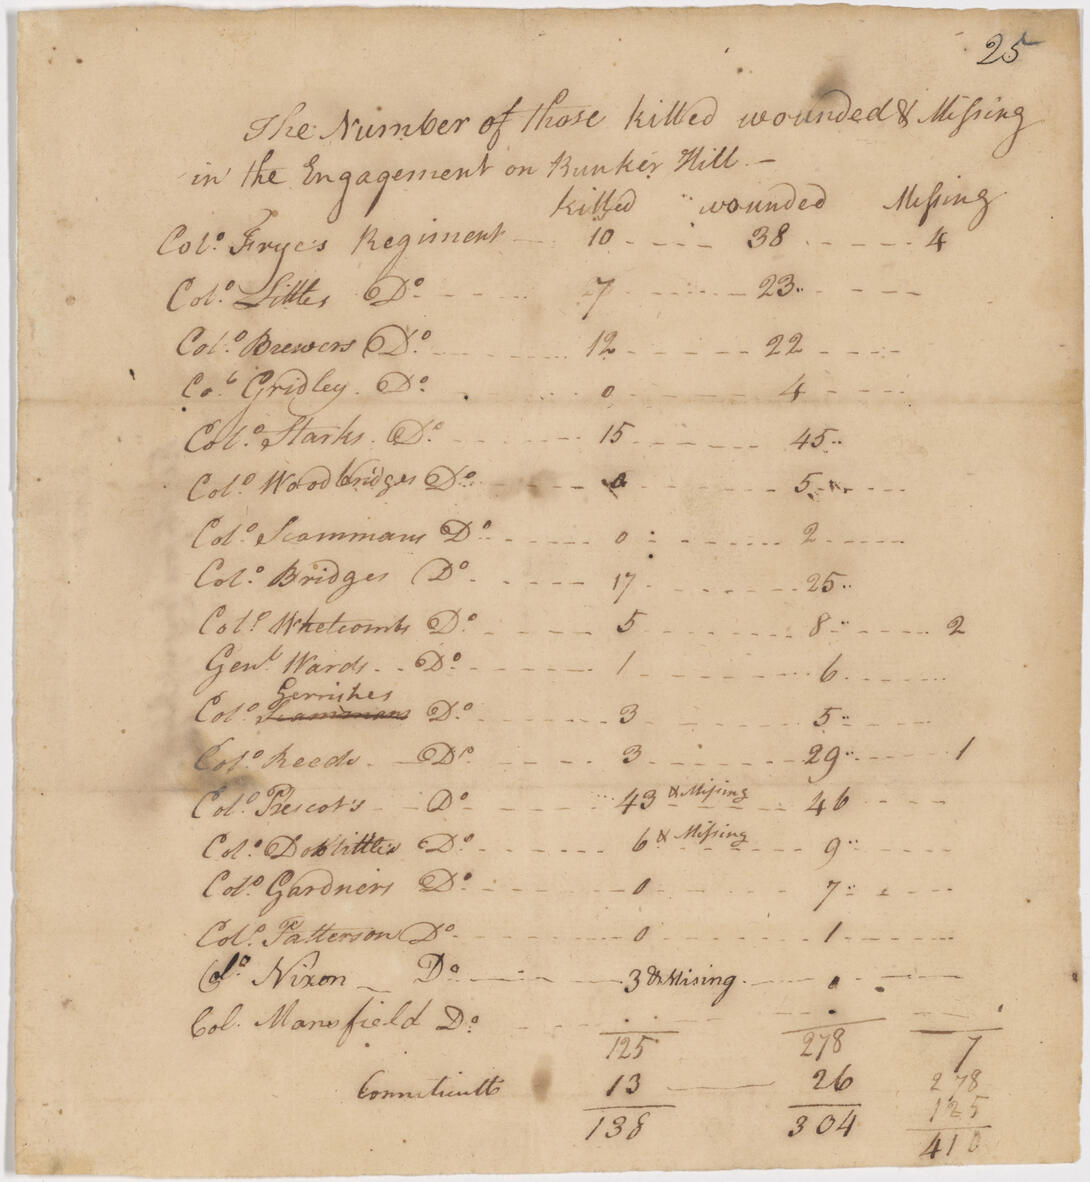 25
The Number of those killed wounded & Missing
in the Engagement on Bunker Hill. —
killed wounded Missing
Colo. Frye's Regiment 10 38 4
Colo. Littles Do. 7 23
Colo. Brewers Do. 12 22
Col. Gridley. Do. 0 4
Colo. Starks. Do. 15 45
Colo. Woodbridges Do. 0 5
Colo. Scammans Do. 0 2
Colo. Bridges Do. 17 25
Colo. Whetcombs Do. 5 8 2
Genl. Wards Do. 1 6
Gerrishes
Colo. Scammans Do. 3 5
Colo. Reeds Do. 3 29 1
Colo. Prescots Do. 43 & Missing 46
Colo. Dolittles Do. 6 & Missing 9
Colo. Gardners Do. 0 7
Colo. Patterson Do. 0 1
Colo. Nixon Do. 3 & Mising 0
Col. Mansfield Do.
125 278 7
Conneticutt 13 26 278
125
138 304 410